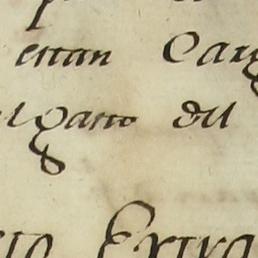 estan Car
el gasto del
to Extra